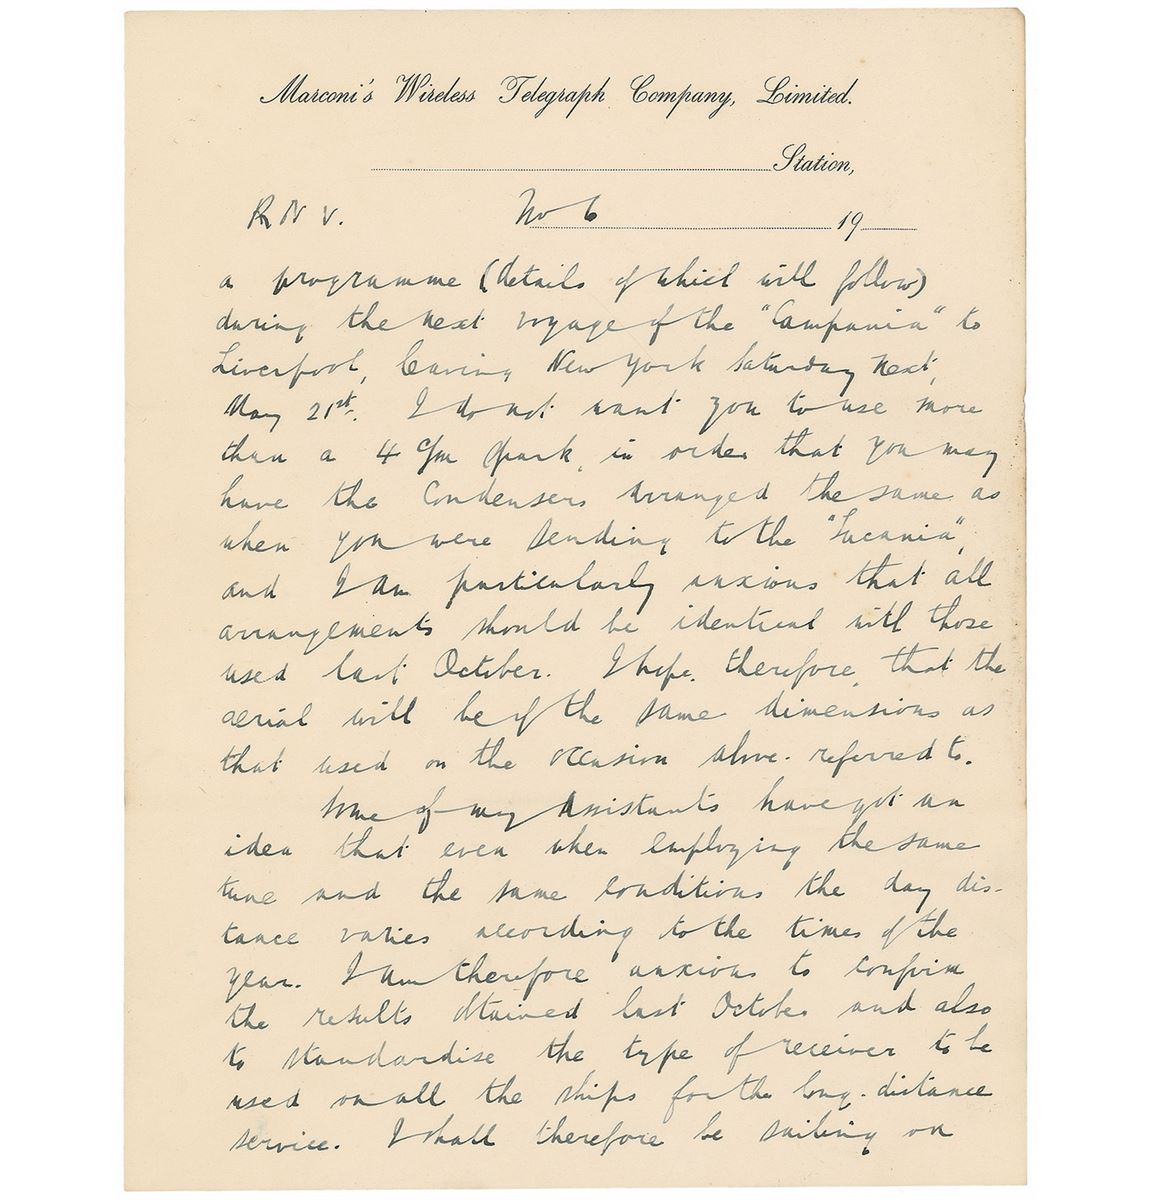 Marconi's Wireless Telegraph Company, Limited.
Station,
R N V. No 6 19
a programme (details of which will follow)
during the next voyage of the "Campania" to
Liverpool, leaving New York Saturday next,
May 21st. I do not want you to use more
than a 4 c/m spark, in order that you may
have the condensers arranged the same as
when you were sending to the "Lucania",
and I am particularly anxious that all
arrangements should be identical with those
used last October. I hope, therefore, that the
aerial will be of the same dimensions as
that used on the occasion above-referred to.
Some of my Assistants have got an
idea that even when employing the same
tune and the same conditions the day dis-
tance varies according to the times of the
year. I am therefore anxious to confirm
the results obtained last October and also
to standardise the type of receiver to be
used on all the ships for the long-distance
service. I shall therefore be sailing on